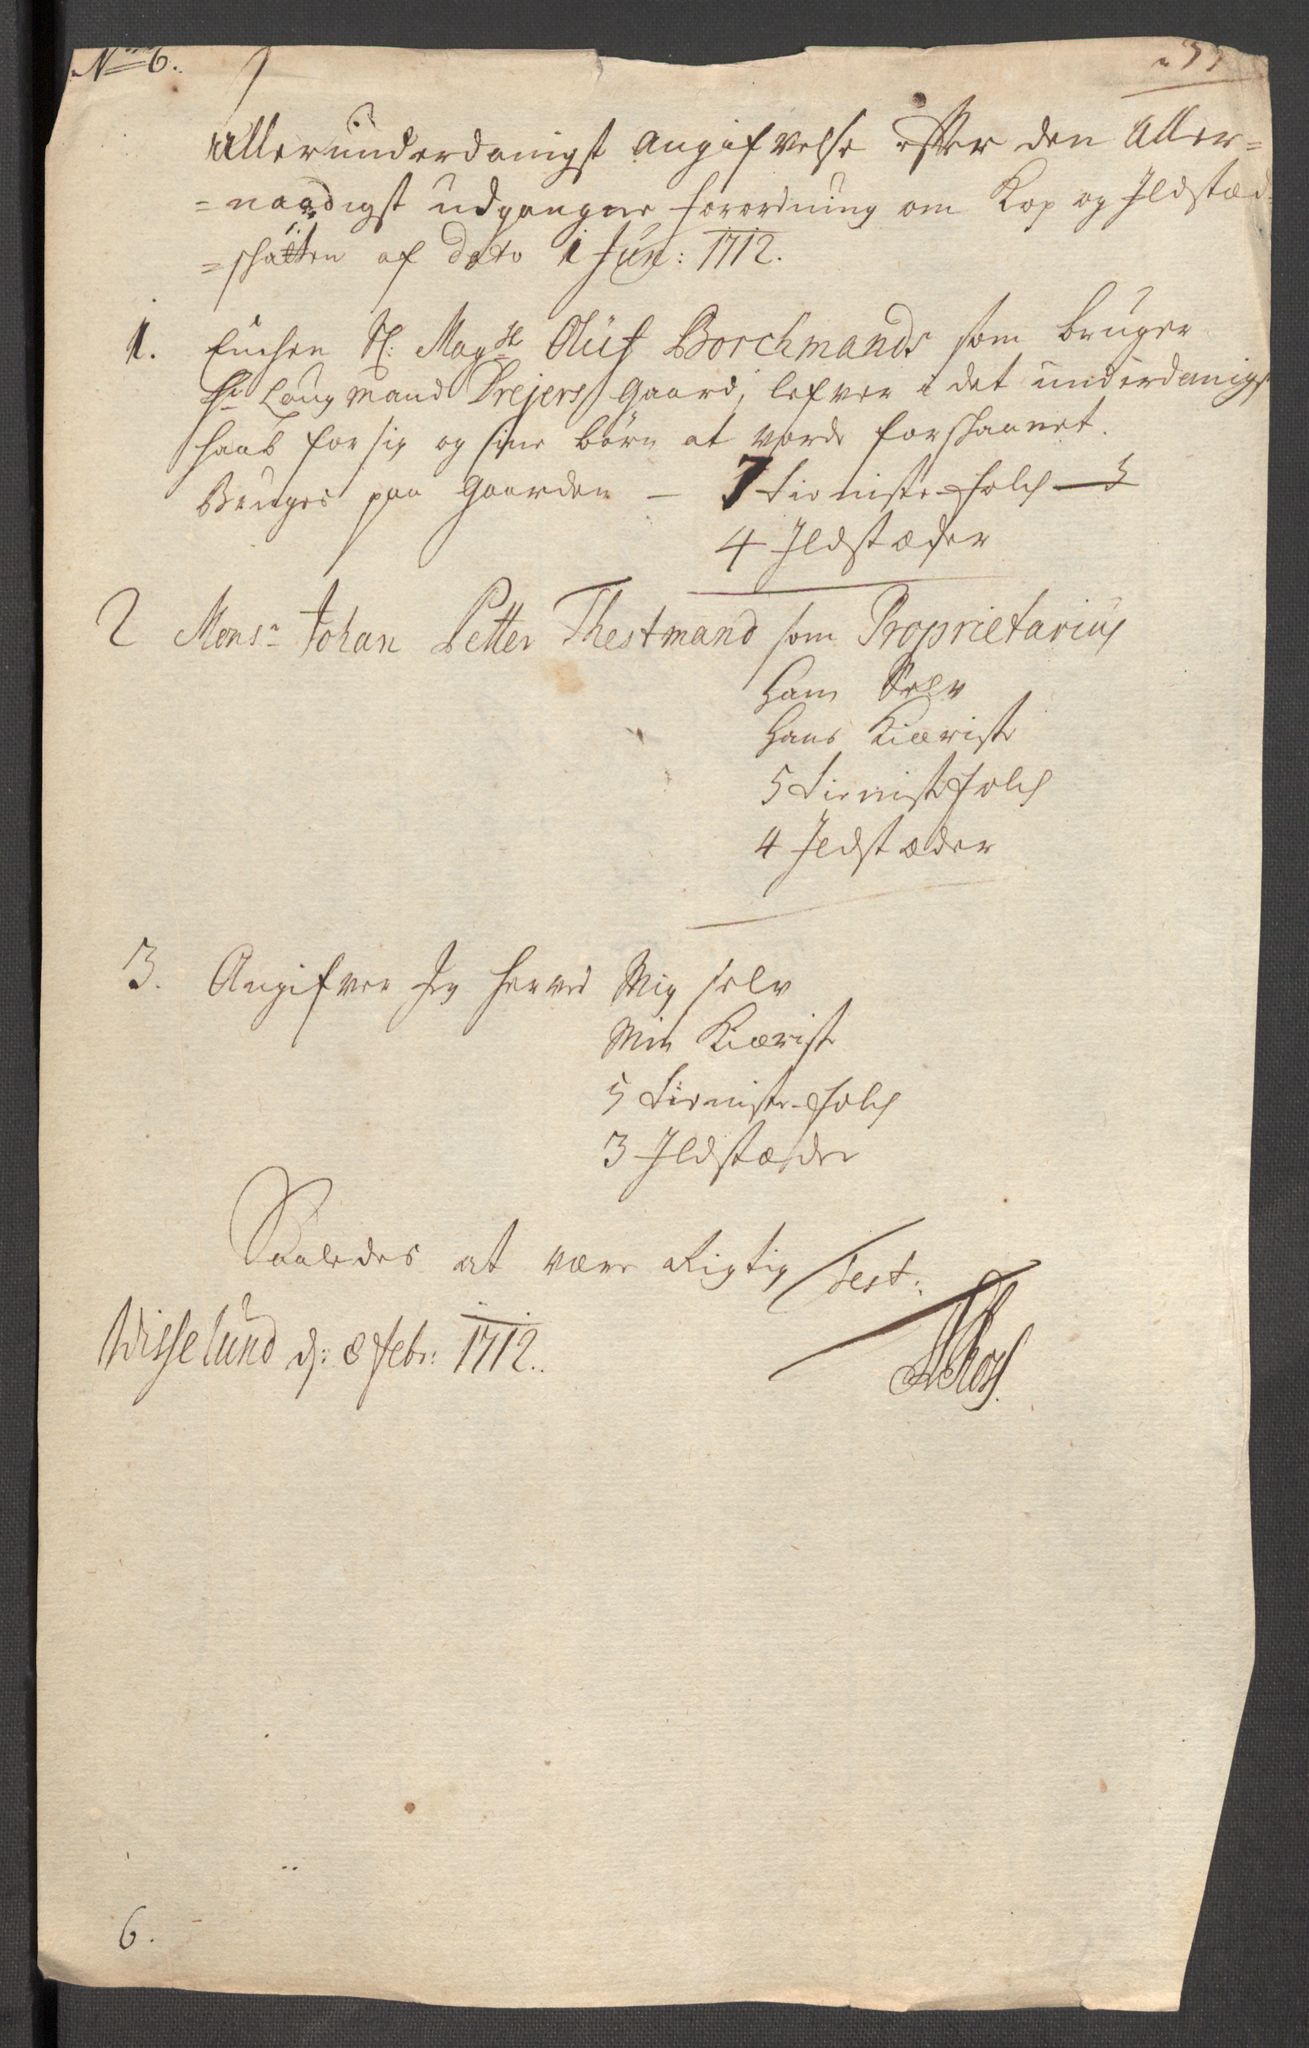 No 6.
Allerunderdanigst Angifvelse efter den Aller=
=naadigst udgangne forordning om Kop og Ildstæd
=skatten af dato 1 Jun: 1712.
1. Enchen Sl: Magst Oluf Borchmands som bruger
Hr Laugmand Drejers Gaard, lefver i det underdanigst
haab for sig og sine børn at vorde forskaanet.
Bruges paa Gaarden — 7 tieniste-folch
4 Ildstæder
2 Monsr Johan Petter Thestmand som Proprietarius
Ham Selv
Hans Kiæriste
5 tienistefolch
4 Ildstæder
3. Angifver Jeg herved Mig selv
Min Kiæriste
5 tieniste-folch
3 Ildstæder
Saaledes at være Rigtig test:
Wisselund d: 8 Febr: 1712.
6.